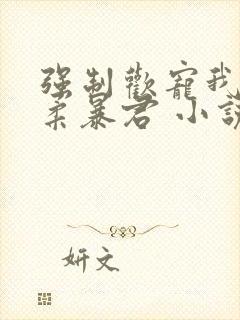 强制歡寵我
柔暴君 小說
妍文